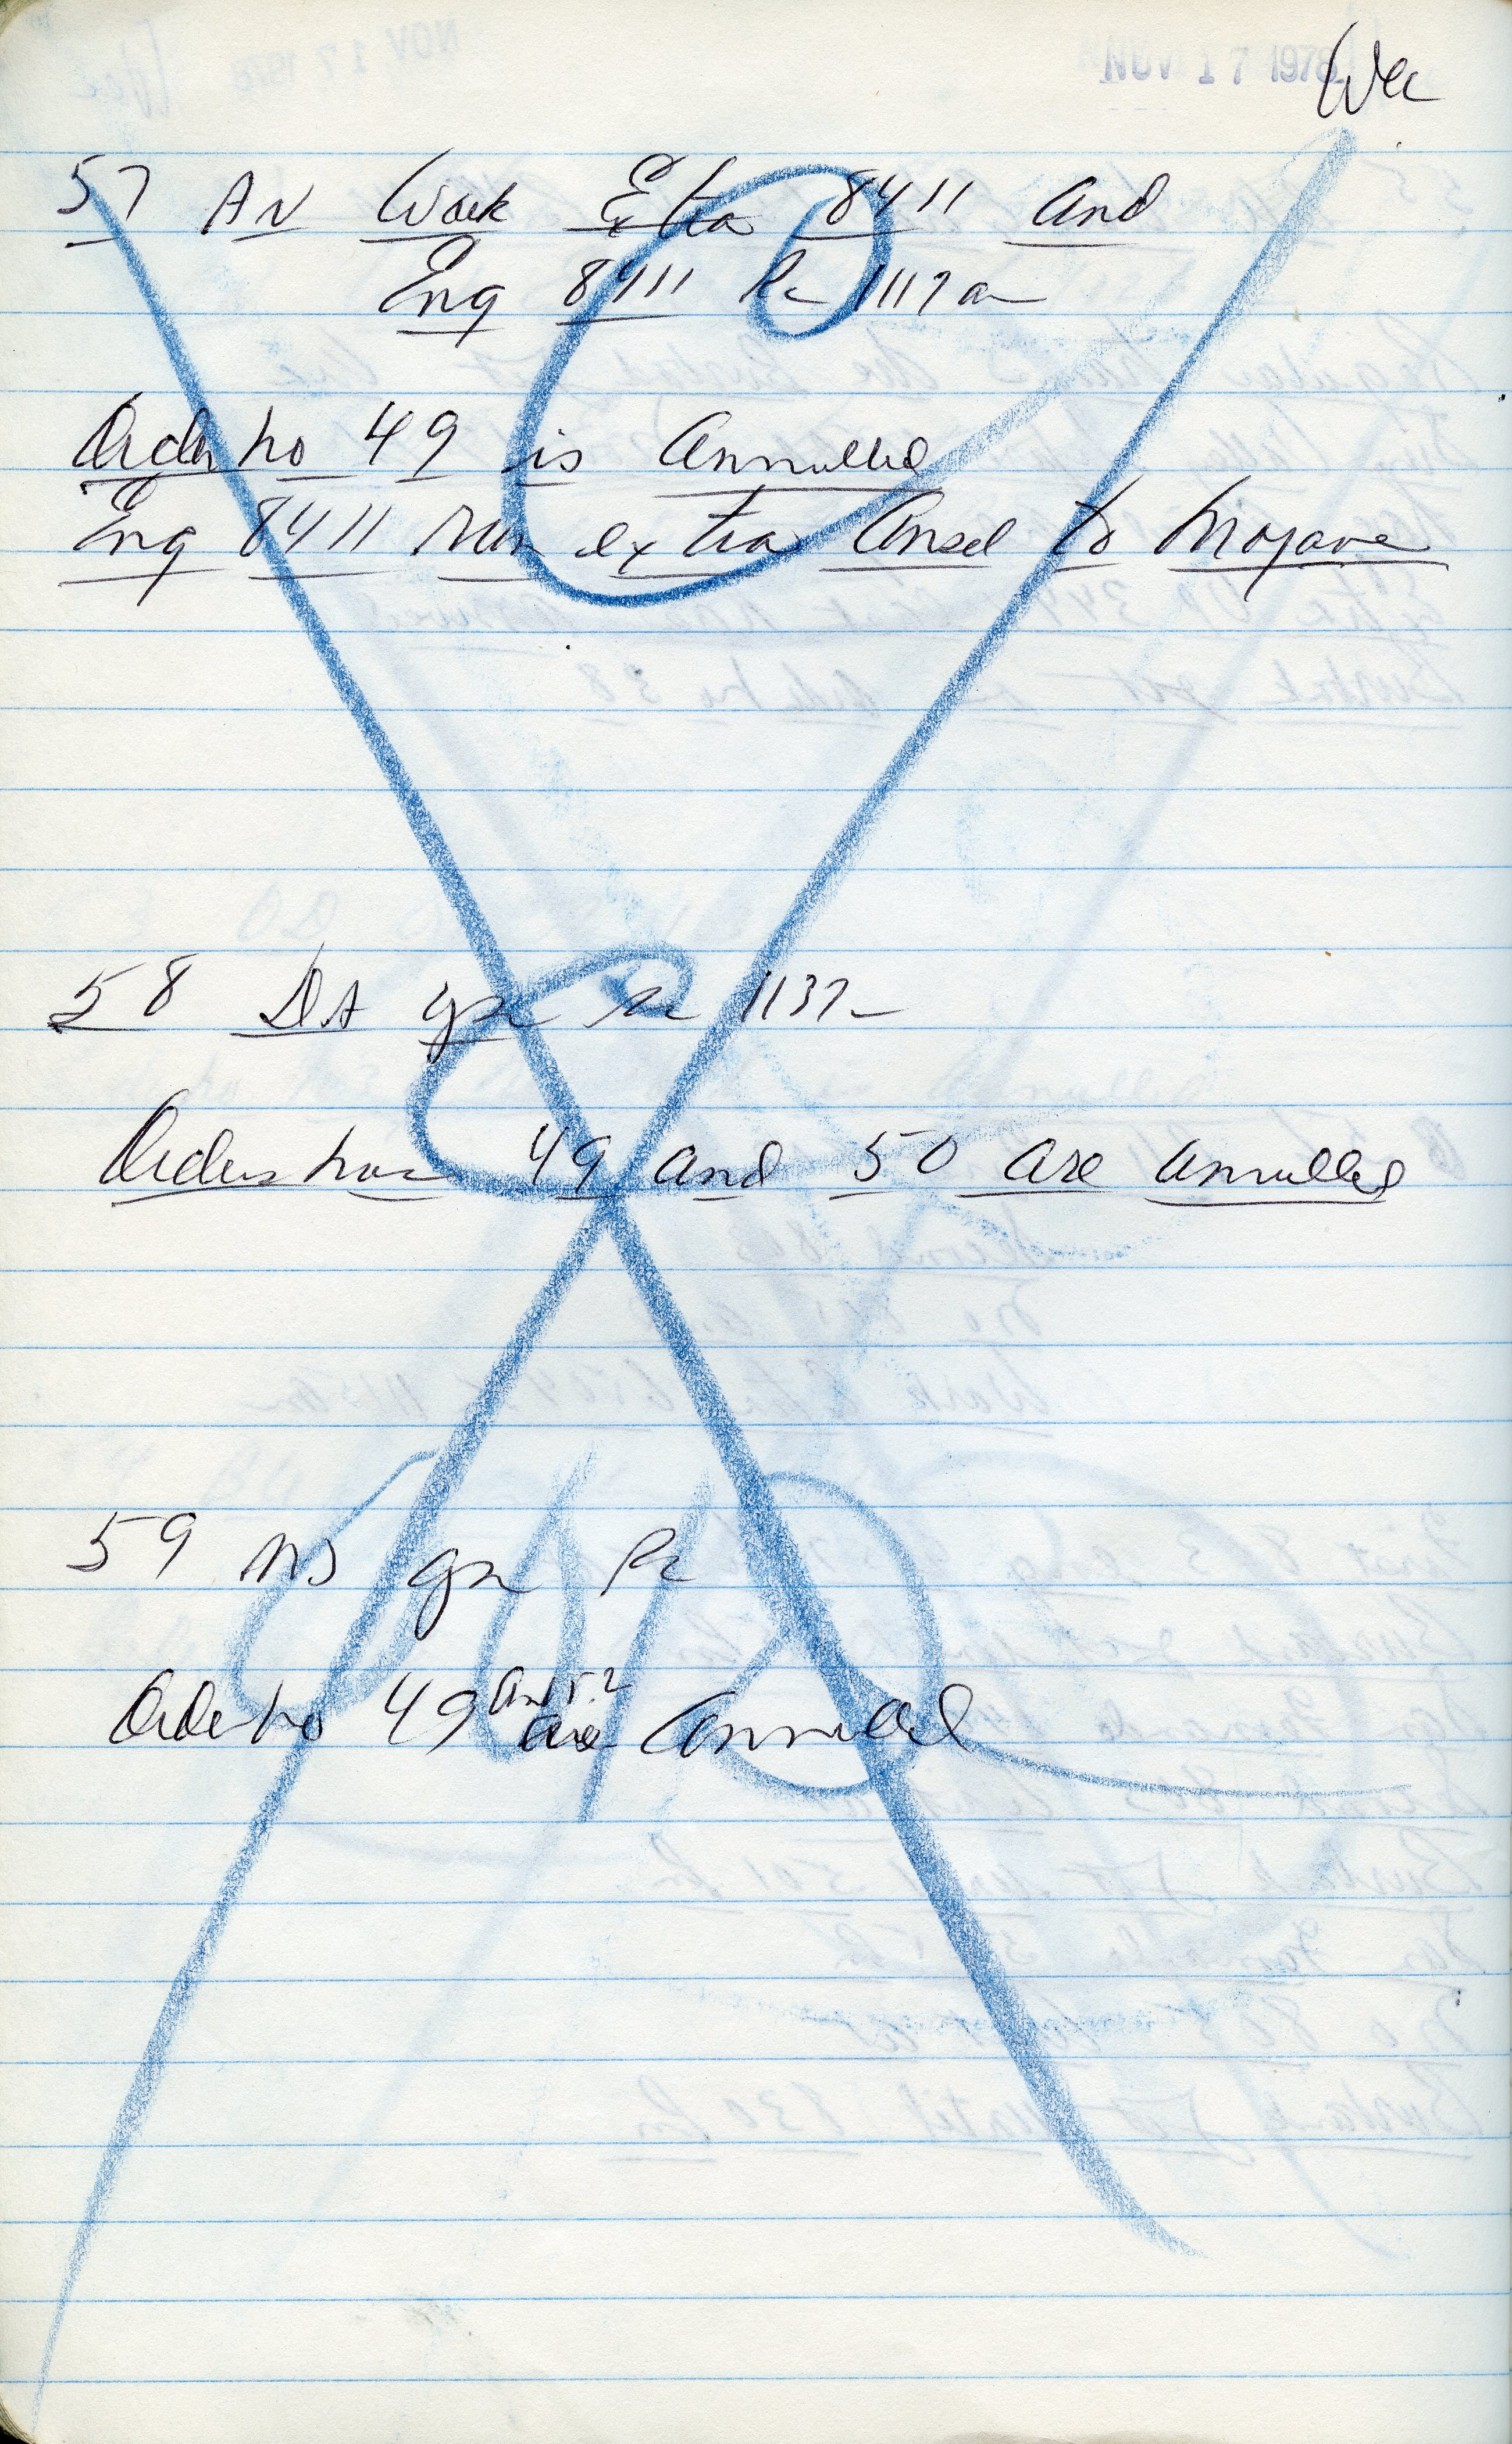 NOV 17 1978
57 AN Work Extra 8411 and
Eng 8411 1117 a
Order No 49 is Annulled
Eng 8411 run extra Ansel to Mojave
58 DA 1137
Orders Nos 49 and 50 are annulled
59 MS
Order No 49 and 52 are Annulled